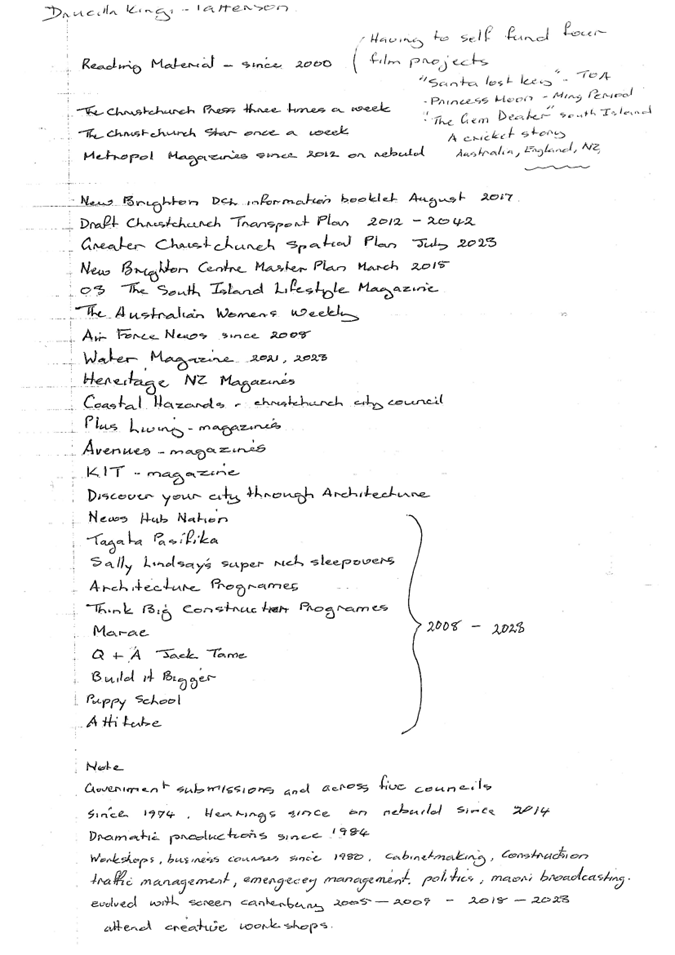 Drucilla Kingi - Patterson
Having to self fund four
film projects
"Santa lost key" - TOA
- Princess Moon - Ming Period
"The Gem Dealer" South Island
A cricket story
Australia, England, NZ,
Reading Material - since 2000
The Christchurch Press three times a week
The Christchurch Star once a week
Metropol Magazines since 2012 on rebuild
New Brighton DCH information booklet August 2017
Draft Christchurch Transport Plan 2012 - 2042
Greater Christchurch Spatial Plan July 2023
New Brighton Centre Master Plan March 2015
03 The South Island Lifestyle Magazine
The Australian Womens Weekly
Air Force News since 2008
Water Magazine 2021, 2023
Hereitage NZ Magazines
Coastal Hazards - christchurch city council
Plus Living - magazines
Avenues - magazines
KIT - magazine
Discover your city through Architecture
News Hub Nation
Tagata Pasifika
Sally Lindsay's super rich sleepovers
Architecture Programes
Think Big Construction Programes
Marae
Q + A Jack Tame
Build it Bigger
Puppy School
Attitube
2008 - 2023
Note
Government submissions and across five councils
since 1974. Hearings since on rebuild since 2014
Dramatic productions since 1984
Workshops, business courses since 1980. cabinetmaking, Construction
traffic management, emergecey management. politics, maori broadcasting.
evolved with screen canterbury 2005 - 2009 - 2018 - 2023
attend creative workshops.